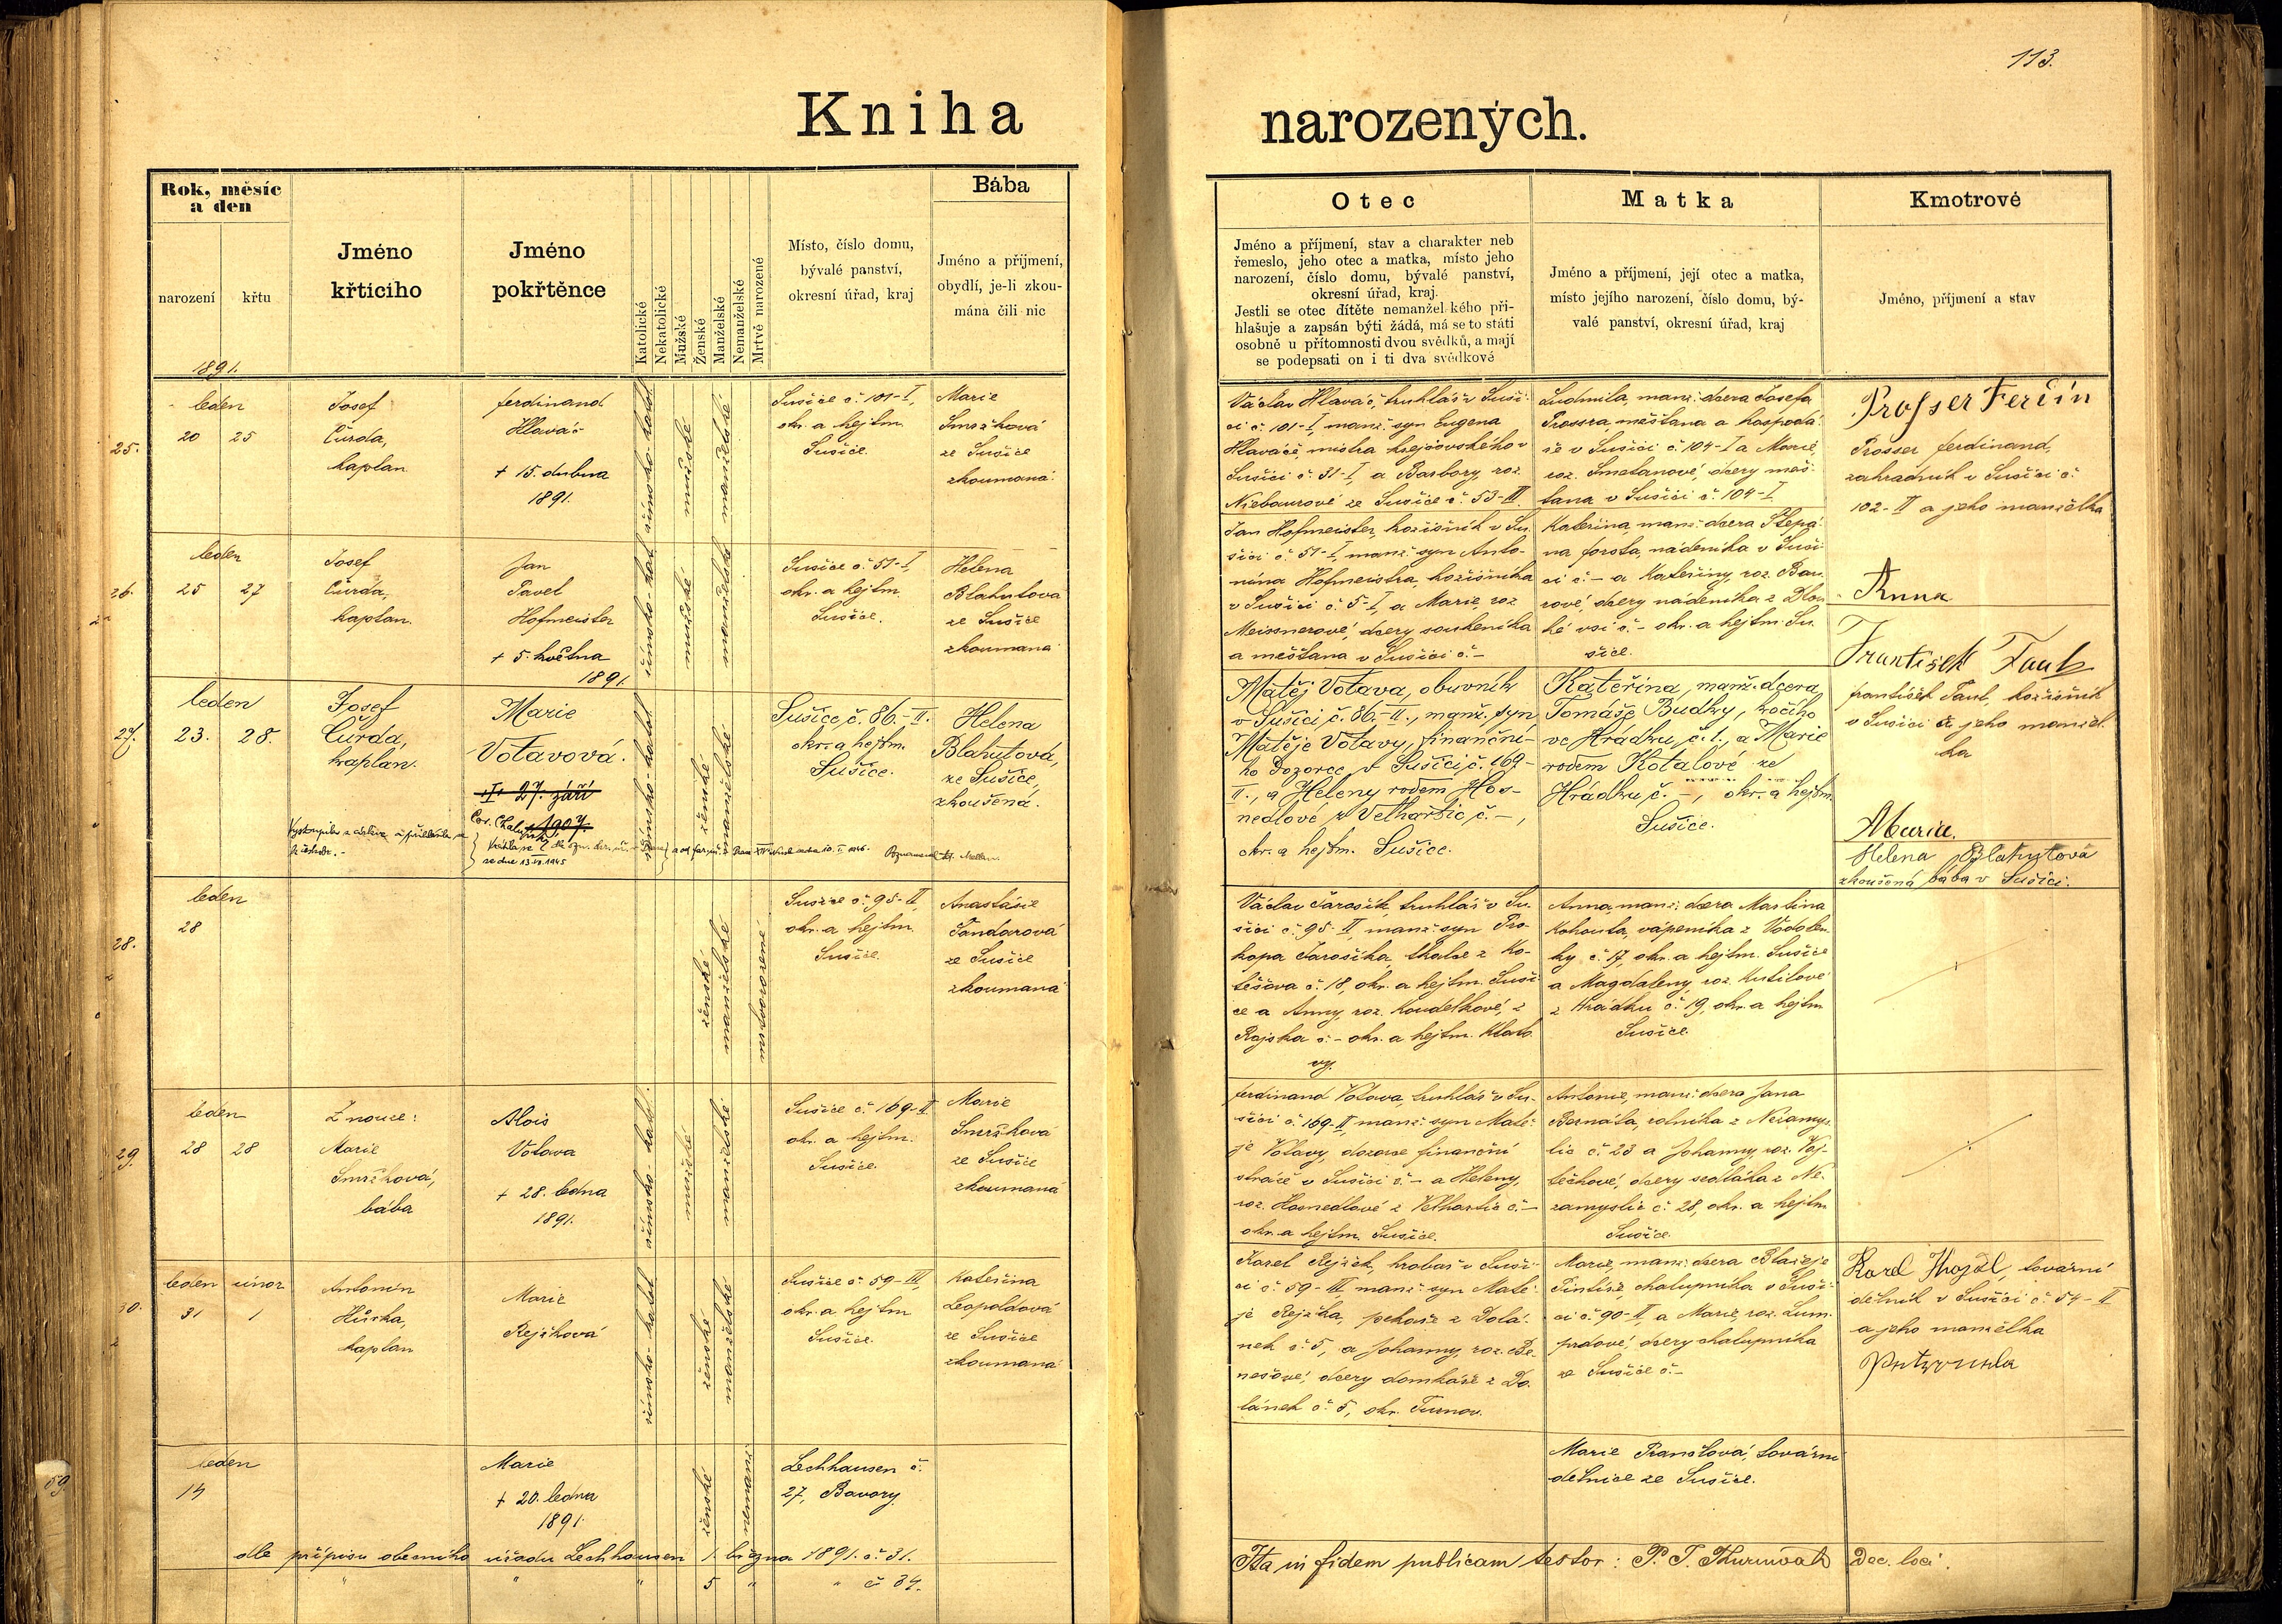 113.
Kniha
narozených.
Rok, měsíc
a den
narození
křtu
Jméno
křticího
Jméno
pokřtěnce
Katolické
Nekatolické
Mužské
Ženské
Manželské
Nemanželské
Mrtvě narozené
Místo, číslo domu,
bývalé panství,
okresní úřad, kraj
Bába
Jméno a příjmení,
obydlí, je-li zkou-
mána čili nic
Otec
Jméno a příjmení, stav a charakter neb
řemeslo, jeho otec a matka, místo jeho
narození, číslo domu, bývalé panství,
okresní úřad, kraj.
Jestli se otec dítěte nemanželského při-
hlašuje a zapsán býti žádá, má se to státi
osobně u přítomnosti dvou svědků, a mají
se podepsati on i ti dva svědkové
Matka
Jméno a příjmení, její otec a matka,
místo jejího narození, číslo domu, bý-
valé panství, okresní úřad, kraj
Kmotrové
Jméno, příjmení a stav
1891.
25.
leden
20 25
Josef
Čurda,
kaplan
Ferdinand
Hlaváč
+ 15. dubna
1891.
římsko-katol.
mužské
manželské
Sušice č. 101-I,
okr. a hejtm.
Sušice.
Marie
Smržková
ze Sušice
zkoumaná
Václav Hlaváč, truhlář v Suši-
ci č. 101-I, manž. syn Eugena
Hlaváče, mistra krejčovského v
Sušici č. 31-I, a Barbory, roz.
Niebaurové ze Sušice č. 53-III
Ludmila, manž. dcera Josefa
Prossra, měšťana a hospodá-
ře v Sušici č. 104-I a Marie,
roz. Smetanové, dcery měš-
ťana v Sušici č. 104-I
Prosser Ferdin
Prosser Ferdinand,
zahradník v Sušici č.
102-II a jeho manželka
Anna
26.
leden
25 27
Josef
Čurda,
kaplan.
Jan
Pavel
Hofmeister
+ 5. května
1891.
římsko-kat.
mužské
manželské
Sušice č. 51-I,
okr. a hejtm.
Sušice.
Helena
Blahutova
ze Sušice
zkoumaná
Jan Hofmeister, kožišník v Su-
šici č. 51-I, manž. syn Anto-
nína Hofmeistra, kožišníka
v Sušici č. 5-I, a Marie, roz.
Meissnerové, dcery soukeníka
a měšťana v Sušici č.-
Kateřina, manž. dcera Štěpá-
na Forsta, nádeníka v Suši-
ci č. - a Kateřiny, roz. Bau-
rové, dcery nádeníka z Dlou-
hé vsi č. - okr. a hejtm. Su-
šice.
František Taub
František Taub, kožišník
v Sušici a jeho manžel-
ka
Marie.
27.
leden
23. 28.
Josef
Čurda,
kaplan.
Marie
Votavová.
+ 27. září
1907.
římsko-katol.
ženské
manželské
Sušice, č. 86.-II.
okr. a hejtm.
Sušice.
Helena
Blahutová,
ze Sušice,
zkoušená.
Matěj Votava, obuvník
v Sušici č. 86.-II., manž. syn
Matěje Votavy, finanční-
ho dozorce v Sušici č. 169-
II., a Heleny rodem Hos-
nedlové z Velhartic č. -,
okr. a hejtm. Sušice.
Kateřina, manž. dcera
Tomáše Budky, kočího
ve Hrádku, č. 1., a Marie
rodem Kotalové ze
Hrádku č. -, okr. a hejtm.
Sušice.
Helena Blahutová
zkoušená bába v Sušici.
28.
leden
28
ženské
manželské
mrtvorozené
Sušice č. 95-II,
okr. a hejtm.
Sušice.
Anastásie
Tandarová
ze Sušice
zkoumaná
Václav Jarošík, truhlář v Su-
šici č. 95-II, manž. syn Pro-
kopa Jarošíka, tkalce z Ko-
těšova č. 18, okr. a hejtm. Suši-
ce a Anny, roz. Koudelkové, z
Rajska č. - okr. a hejtm. Klato-
vy.
Anna, manž. dcera Martina
Kohouta, vápeníka z Vodolen-
ky č. 17, okr. a hejtm. Sušice
a Magdaleny, roz. Kutilové
z Hrádku č. 19, okr. a hejtm.
Sušice.
29.
leden
28 28
Z nouze:
Marie
Smržková,
bába
Alois
Votava
+ 28. ledna
1891.
římsko-katol.
mužské
manželské
Sušice č. 169-II
okr. a hejtm.
Sušice.
Marie
Smržková
ze Sušice
zkoumaná
Ferdinand Votava, truhlář v Su-
šici č. 169-II, manž. syn Matě-
je Votavy, dozorce finanční
stráže v Sušici č. - a Heleny,
roz. Hosnedlové z Velhartic č. -
okr. a hejtm. Sušice.
Antonie, manž. dcera Jana
Bernáta, rolníka z Nezamys-
lic č. 23 a Johanny, roz. Voj-
těchové, dcery sedláka z Ne-
zamyslic č. 28, okr. a hejtm.
Sušice.
30.
leden únor
31 1
Antonín
Hůrka,
kaplan
Marie
Rejžková
římsko-katol.
ženské
manželské
Sušice č. 59-III,
okr. a hejtm.
Sušice.
Kateřina
Leopoldová
ze Sušice
zkoumaná
Karel Rejžek, hrobař v Suši-
ci č. 59-III, manž. syn Matě-
je Rejžka, pekaře z Dolá-
nek č. 5, a Johanny, roz. Be-
nešové, dcery domkáře z Do-
lánek č. 5, okr. Turnov.
Marie, manž. dcera Blažeje
Pintíře, chalupníka v Suši-
ci č. 90-II, a Marie, roz. Lum-
prdové, dcery chalupníka
ze Sušice č.-
Karel tovární
dělník v Sušici č. 54-II
a jeho manželka
59
leden
14
Marie
+ 20. ledna
1891.
ženské
nemanž.
Lechhausen č.
27, Bavory
Marie Pranťlová, tovární
dělnice ze Sušice.
dle přípisu obecního úřadu Lechhausen 1. března 1891. č. 31.
" " " 5 " " č. 34.
Ita in fidem publicam testor: P. J. Dec. loci.